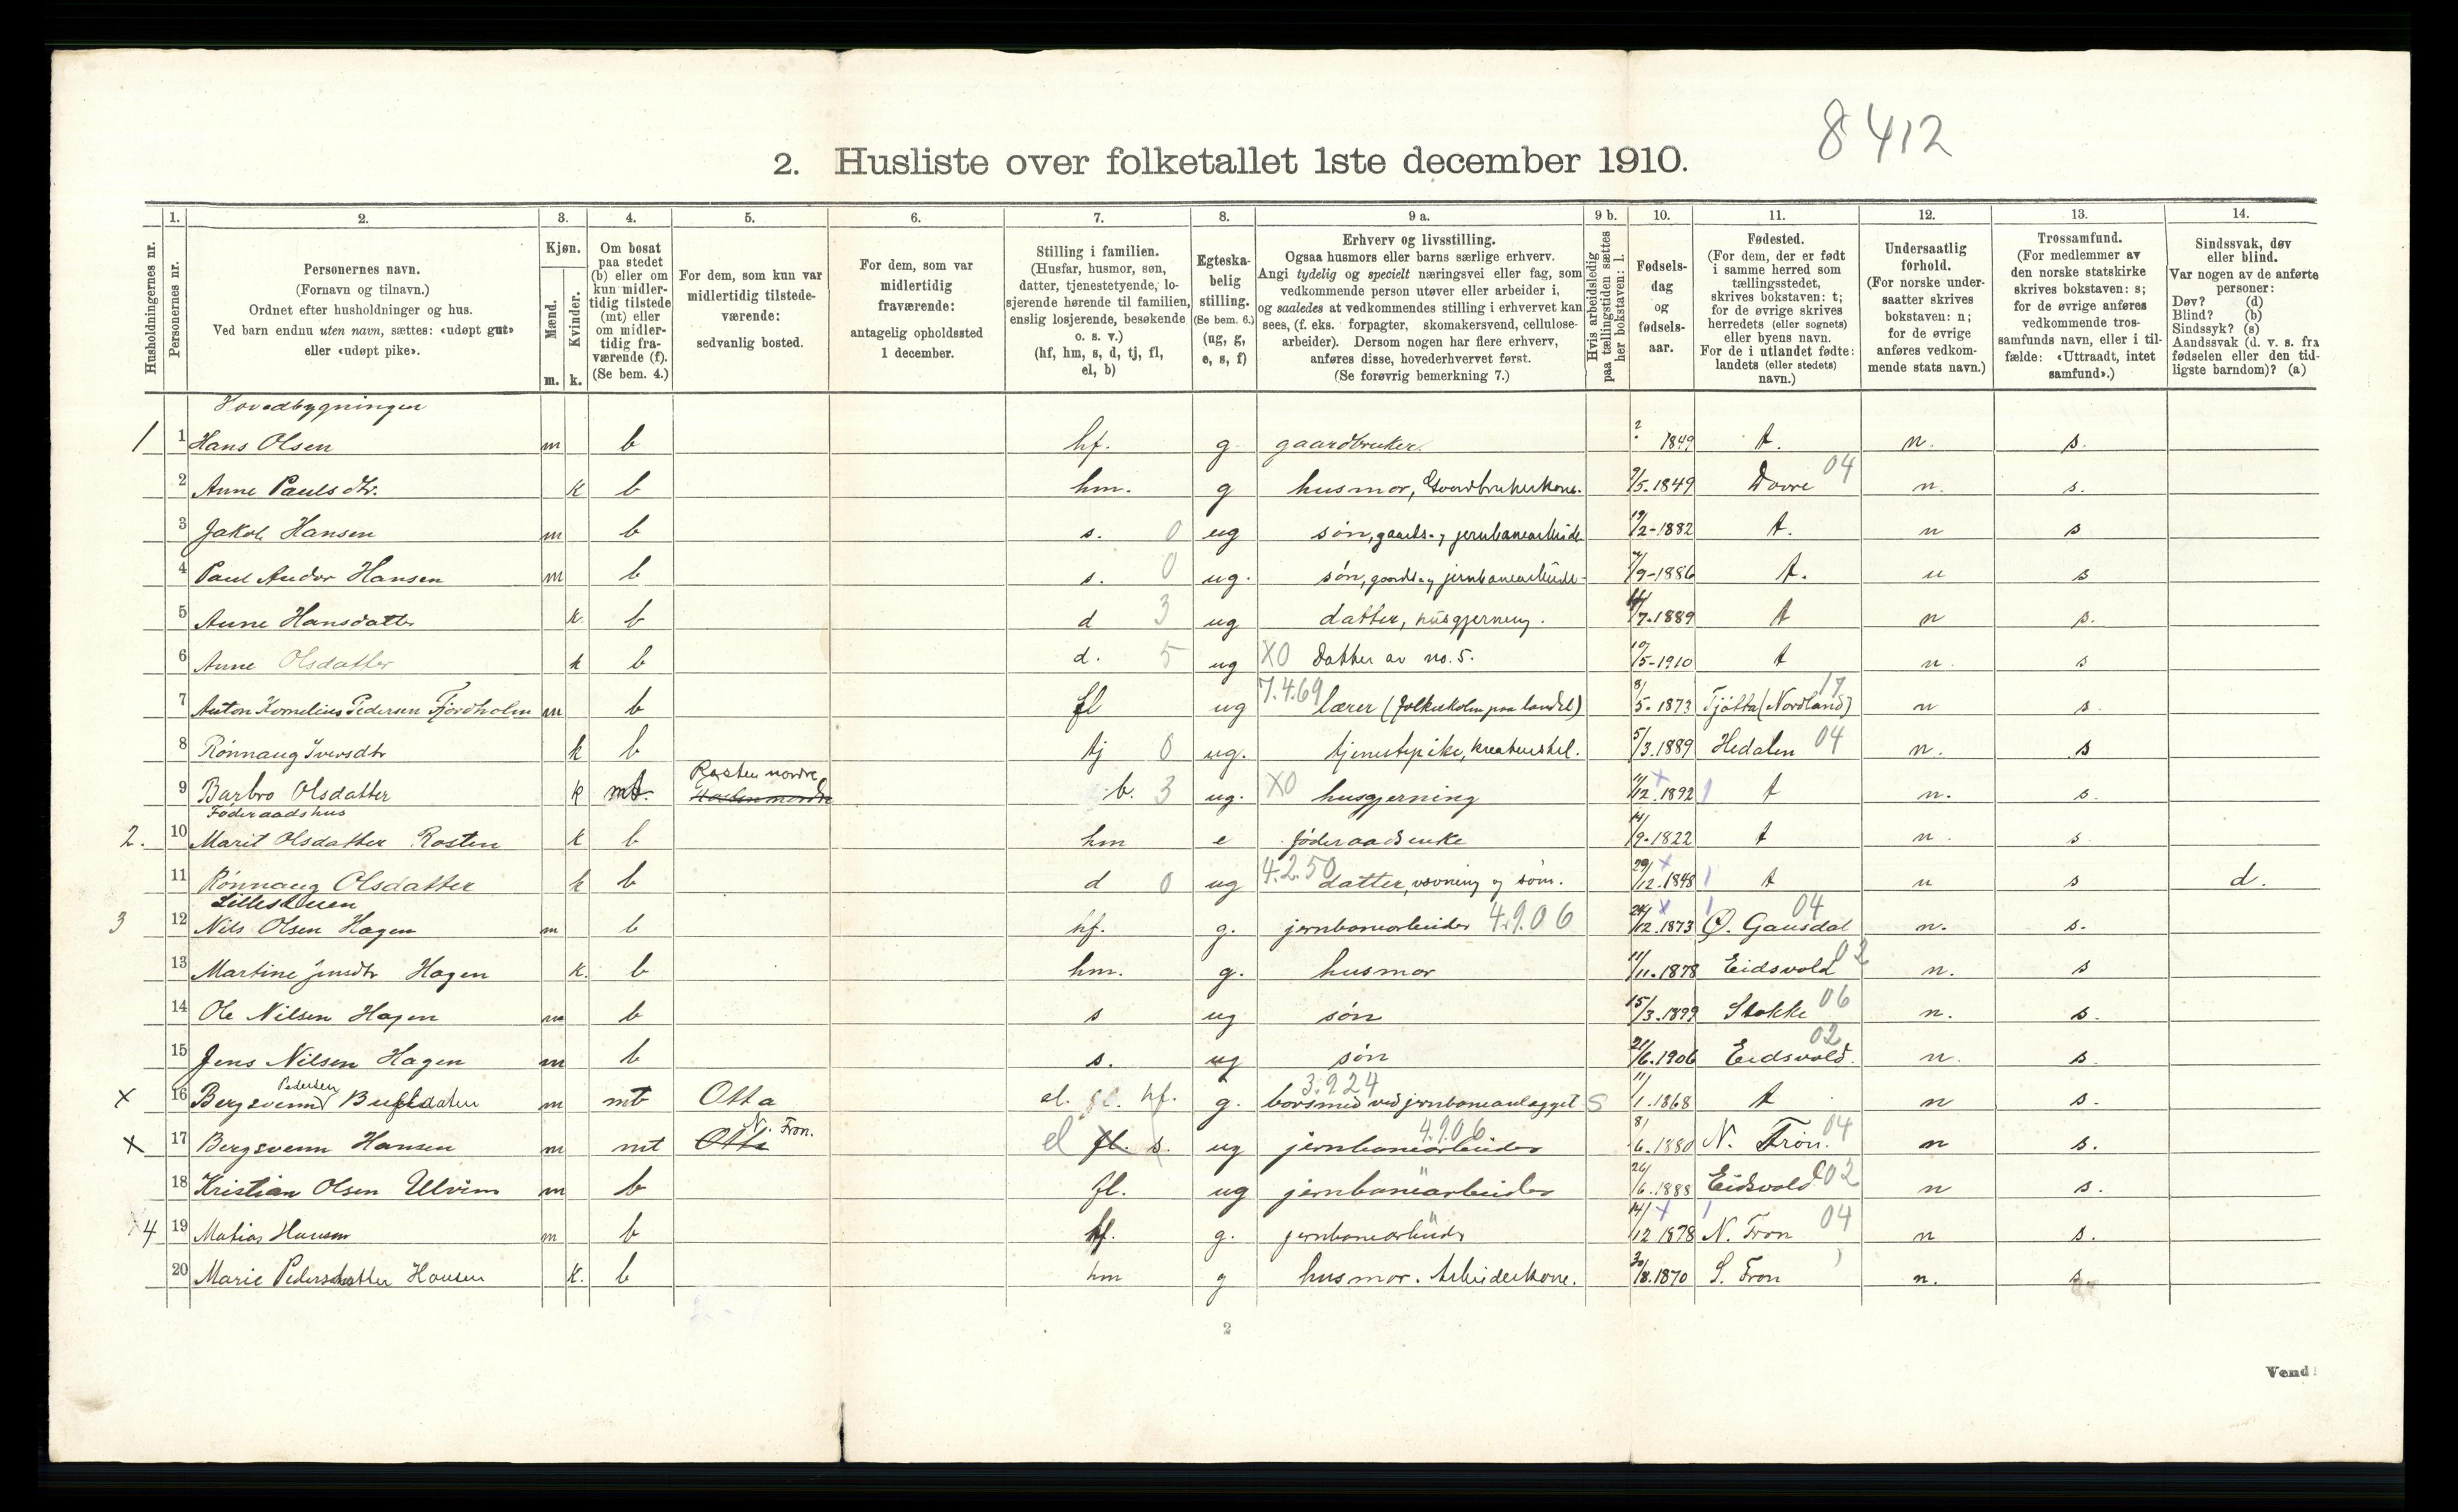 8412
2. Husliste over folketallet 1ste december 1910.
Husholdningernes nr.
1. Personernes nr.
2. Personernes navn.
(Fornavn og tilnavn.)
Ordnet efter husholdninger og hus.
Ved barn endnu uten navn, sættes: «udøpt gut»
eller «udøpt pike».
3. Kjøn.
Mænd. m.
Kvinder. k.
4. Om bosat
paa stedet
(b) eller om
kun midler-
tidig tilstede
(mt) eller
om midler-
tidig fra-
værende (f).
(Se bem. 4.)
5. For dem, som kun var
midlertidig tilstede-
værende:
sedvanlig bosted.
6. For dem, som var
midlertidig
fraværende:
antagelig opholdssted
1 december.
7. Stilling i familien.
(Husfar, husmor, søn,
datter, tjenestetyende, lo-
sjerende hørende til familien,
enslig losjerende, besøkende
o. s. v.)
(hf, hm, s, d, tj, fl,
el, b)
8. Egteska-
belig
stilling.
(Se bem. 6.)
(ug, g,
e, s, f)
9 a. Erhverv og livsstilling.
Ogsaa husmors eller barns særlige erhverv.
Angi tydelig og specielt næringsvei eller fag, som
vedkommende person utøver eller arbeider i,
og saaledes at vedkommendes stilling i erhvervet kan
sees, (f. eks. forpagter, skomakersvend, cellulose-
arbeider). Dersom nogen har flere erhverv,
anføres disse, hovederhvervet først.
(Se forøvrig bemerkning 7.)
9 b. Hvis arbeidsledig
paa tællingstiden sættes
her bokstaven: l.
10. Fødsels-
dag
og
fødsels-
aar.
11. Fødested.
(For dem, der er født
i samme herred som
tællingsstedet,
skrives bokstaven: t;
for de øvrige skrives
herredets (eller sognets)
eller byens navn.
For de i utlandet fødte:
landets (eller stedets)
navn.)
12. Undersaatlig
forhold.
(For norske under-
saatter skrives
bokstaven: n;
for de øvrige
anføres vedkom-
mende stats navn.)
13. Trossamfund.
(For medlemmer av
den norske statskirke
skrives bokstaven: s;
for de øvrige anføres
vedkommende tros-
samfunds navn, eller i til-
fælde: «Uttraadt, intet
samfund».)
14. Sindssvak, døv
eller blind.
Var nogen av de anførte
personer:
Døv? (d)
Blind? (b)
Sindssyk? (s)
Aandssvak (d. v. s. fra
fødselen eller den tid-
ligste barndom)? (a)
Hovedbygningen
1 1 Hans Olsen m b hf. g gaardbruker. ? 1849 t. n. s.
2 Anne Paulsdtr. k b hm. g husmor, Gaardbrukerkone. 9/5.1849 Dovre 04 n. s.
3 Jakob Hansen m b s. 0 ug søn, gaards- og jernbanearbeide 19/2-1882 t. n s
4 Paul Andor Hansen m b s. 0 ug. søn, gaards- og jernbanearbeide- 7/9-1886 t. n s
5 Anne Hansdatter k. b d 3 ug datter, husgjerning. /7.1889 t n s.
6 Anne Olsdatter k b d. 5 ug X0 Datter av no. 5. 10/5-1910 t n. s
7 Anton Kornelius Pedersen Fjordholm m b fl ug 7.4.69 lærer (folkeskolen paa landet) 8/5.1873 Tjøtta (Nordland) 17 n s.
8 Rønnaug Iversdtr k b tj 0 ug. tjenestepike, kreaturstel. 5/3.1889 Hedalen 04 n. s
9 Barbro Olsdatter k mt. Rosten nordre b. 3 ug. X0 husgjerning 11/12.1892 1 t n. s.
Føderaadshus
2. 10 Marit Olsdatter Rosten k b hm e føderaadsenke 14/9-1822 t n. s.
11 Rønnaug Olsdatter k b d 0 ug 4.2.50 datter, vævning og søm. 29/12.1848 1 t n s d.
Lillestuen
3 12 Nils Olsen Hagen m b hf. g. jernbanearbeider 4.9.06 24/12.1873 1 Ø. Gausdal 04 n. s.
13 Martine Jensdtr Hagen k. b hm. g. husmor 11/11.1878 Eidsvold 02 n. s
14 Ole Nilsen Hagen m b s ug søn 15/3.1899 Stokke 06 n. s.
15 Jens Nilsen Hagen m b s. ug søn 21/6.1906 Eidsvold. 02 n. s.
x 16 Bergsvend Pedersen m mt Otta el. fl. hf. g. 3.924 borsmed ved jernbaneanlægget S 11/1.1868 t n s.
x 17 Bergsvenn Hansen m mt Otta N. Fron. el fl. s. ug 4.9.06 jernbanearbeider 8/6.1880 N. Fron. 04 n s.
18 Kristian Olsen Ulvin m b fl. ug jernbanearbeider 26/6.1888 Eidsvold 02 n s.
4 19 Matias Hansen m b hf. g. " jernbanearbeider 14/12 1878 1 N. Fron 04 n s.
20 Marie Pedersdatter Hansen k. b hm g husmor. Arbeiderkone. 30/8.1870 S. Fron n. s.
2
Vend!